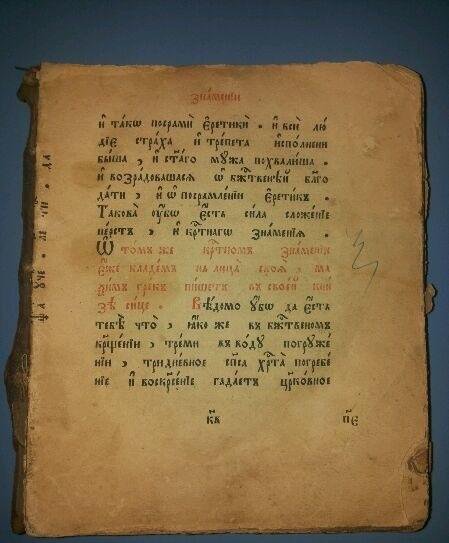 зна́менїи
и҆ та́кѡ посрамѝ є҆ретикѝ . и҆ всѝ лю́
дїе стра́ха и҆ тре́пета и҆спо́лнени
бы́ша , и҆ ст҃а́го мꙋ́жа похвали́ша .
и҆ возра́довашася ѡ҆ бж҃е́ственѣй бл҃го
да́ти , и҆ ѡ҆ посрамле́нїи є҆рети́къ .
Такова̀ ᲂу҆́бѡ є҆́сть си́ла сложе́нїе
пе́рстъ , и҆ кр҃тнагѡ зна́менїя .
Ѡ҆ то́мъ же кр҃тномъ зна́менїи
є҆́же кладе́мъ на ли́ца своя̀ , ма
ѯи́мъ гре́къ пи́шетъ въ свое́й кни́
зѣ си́це . Вѣ́домо ᲂу҆́бѡ да є҆́сть
тебѣ̀ что̀ , ꙗ҆́ко же въ бж҃е́ственомъ
кр҃ще́нїи , тре́ми въ во́дꙋ погрꙋже́
нїи , тридне́вное сп҃са хр҃та̀ погребе́
нїе и҆ воскр҃се́нїе гада́етъ цр҃ко́вное